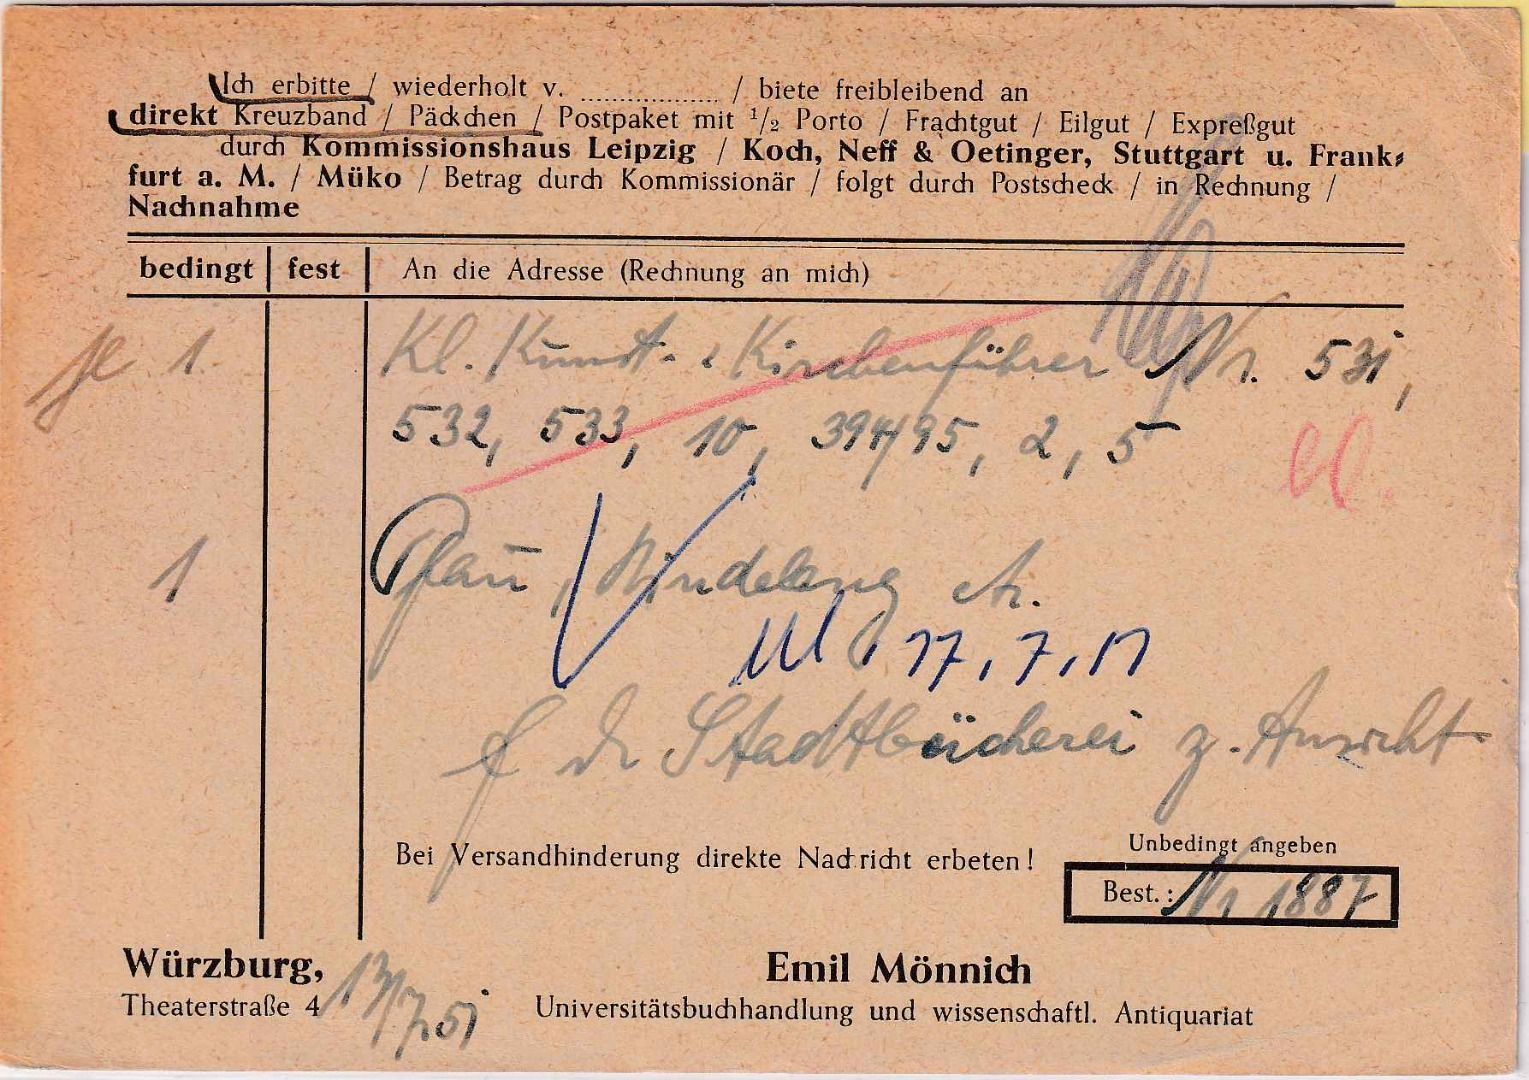 Ich erbitte / wiederholt v. ................. / biete freibleibend an
direkt Kreuzband / Päckchen / Postpaket mit ¹/₂ Porto / Frachtgut / Eilgut / Expreßgut
durch Kommissionshaus Leipzig / Koch, Neff & Oetinger, Stuttgart u. Frank-
furt a. M. / Müko / Betrag durch Kommissionär / folgt durch Postscheck / in Rechnung /
Nachnahme
bedingt fest An die Adresse (Rechnung an mich)
je 1 Kl. Kunst- Kirchenführer Nr. 531,
532, 533, 10, 394/95, 2, 5
1 Pfau, Windelang
17.7.51
f. d. Stadtbücherei z. Ansicht
Bei Versandhinderung direkte Nachricht erbeten!
Unbedingt angeben
Best.: Nr 1887
Würzburg, 13/7.51
Theaterstraße 4
Emil Mönnich
Universitätsbuchhandlung und wissenschaftl. Antiquariat